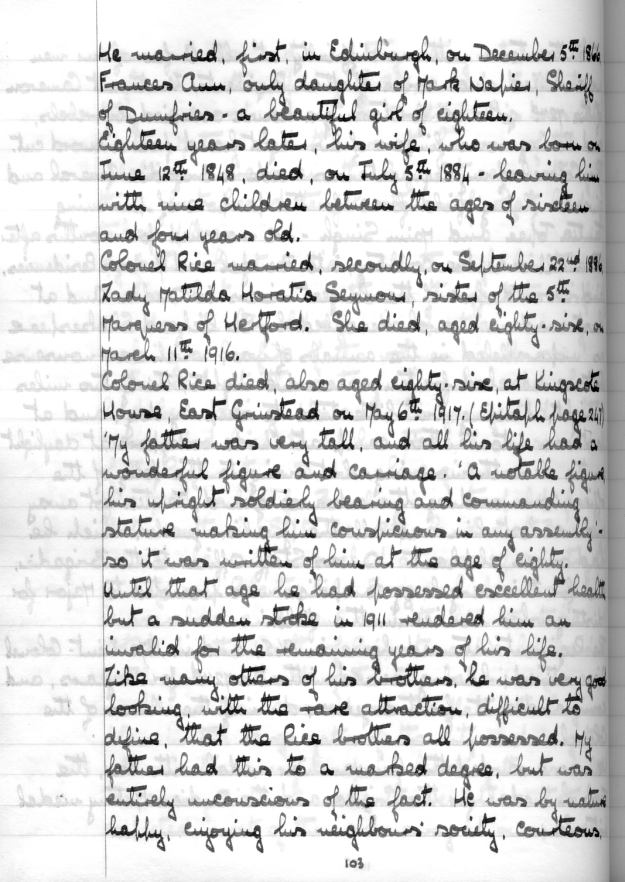 He married, first, in Edinburgh, on December 5th 1866
Frances Ann, only daughter of Mark Napier, Sheriff
of Dumfries - a beautiful girl of eighteen.
Eighteen years later, his wife, who was born on
June 12th 1848, died, on July 5th 1884 - leaving him
with nine children between the ages of sixteen
and four years old.
Colonel Rice married, secondly, on September 22nd
Lady Matilda Horatia Seymour, sister of the 5th
Marquess of Hertford. She died, aged eighty-six, on
March 11th 1916.
Colonel Rice died, also aged eighty-six, at Kingscote
House, East Grinstead on May 6th 1917. (Epitaph page 247)
'My father was very tall, and all his life had a
wonderful figure and carriage. 'A notable figure,
his upright soldierly bearing and commanding
stature making him conspicuous in any assembly'-
so it was written of him at the age of eighty.
Until that age he had possessed excellent health,
but a sudden stroke in 1911 rendered him an
invalid for the remaining years of his life.
Like many others of his brothers, he was very good
looking, with the rare attraction, difficult to
define, that the Rice brothers all possessed. My
father had this to a marked degree, but was
entirely unconscious of the fact. He was by nature
happy, enjoying his neighbours' society, courteous,
103